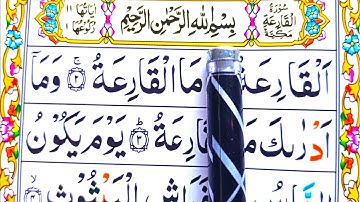 سُورَةُ الْقَارِعَةِ مَكِّيَّةٌ
بِسْمِ اللهِ الرَّحْمٰنِ الرَّحِيْمِ
اٰيَاتُهَا ١١ رُكُوْعُهَا ١
اَلْقَارِعَةُ مَا الْقَارِعَةُ ۚ‏﴿۲﴾ وَمَاۤ
اَدْرٰىكَ قَارِعَةُ ؕ‏﴿۳﴾ يَوْمَ يَكُوْنُ